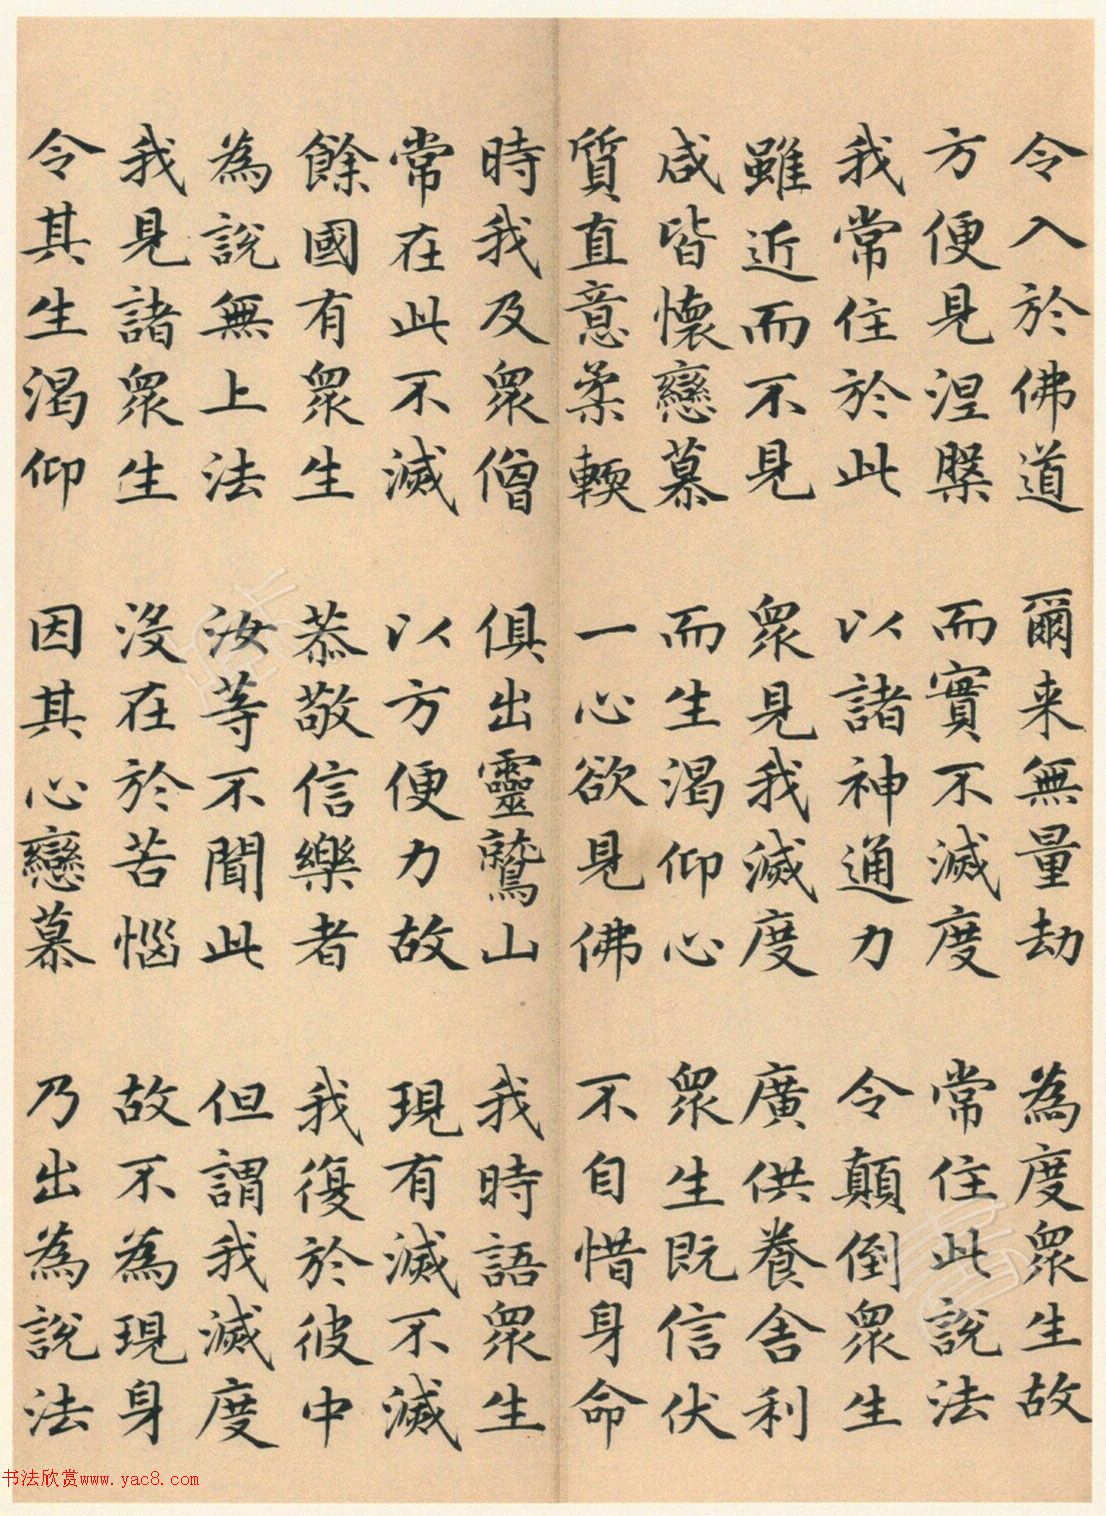 令入於佛道 爾来無量劫 為度眾生故
方便見涅槃 而實不滅度 常住此說法
我常住於此 以諸神通力 令顛倒眾生
雖近而不見 眾見我滅度 廣供養舍利
咸皆懷戀慕 而生渴仰心 眾生既信伏
質直意柔輭 一心欲見佛 不自惜身命
時我及眾僧 俱出靈鷲山 我時語眾生
常在此不滅 以方便力故 現有滅不滅
餘國有眾生 恭敬信樂者 我復於彼中
為說無上法 汝等不聞此 但謂我滅度
我見諸眾生 沒在於苦惱 故不為現身
令其生渴仰 因其心戀慕 乃出為說法
书法欣赏www.yac8.com